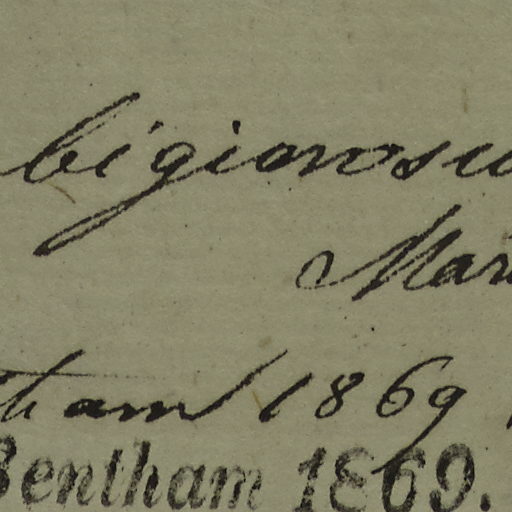 Mar
ham 1869
Bentham 1869.